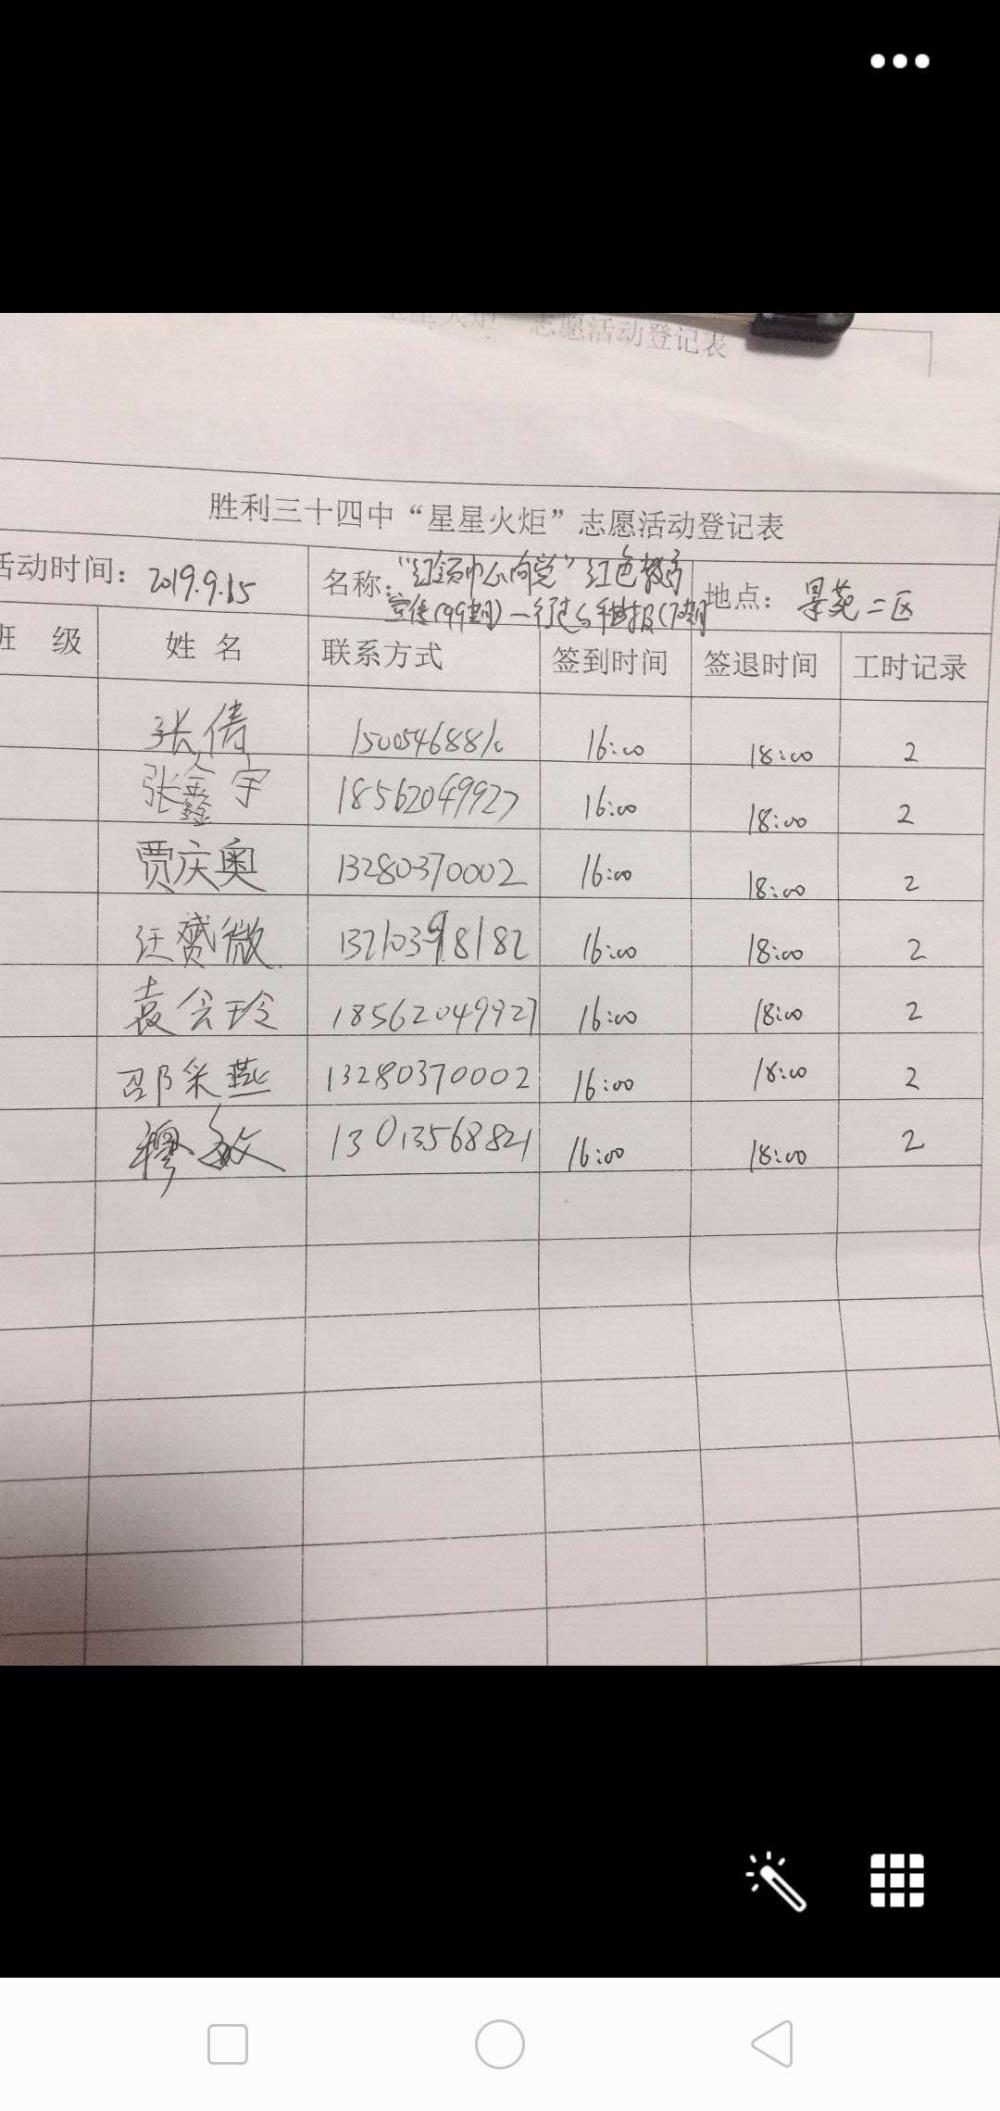 志愿活动登记表
胜利三十四中“星星火炬”志愿活动登记表
活动时间：2019.9.15 名称：“红领巾心向党”红色教育 地点：景苑二区
宣传(99期)一
班 级 姓 名 联系方式 签到时间 签退时间 工时记录
张倩 16:00 18:00 2
张鑫宇 18562049927 16:00 18:00 2
贾庆奥 13280370002 16:00 18:00 2
汪赟微 13210398182 16:00 18:00 2
袁会玲 18562049927 16:00 18:00 2
邵采燕 13280370002 16:00 18:00 2
穆敏 13013568821 16:00 18:00 2